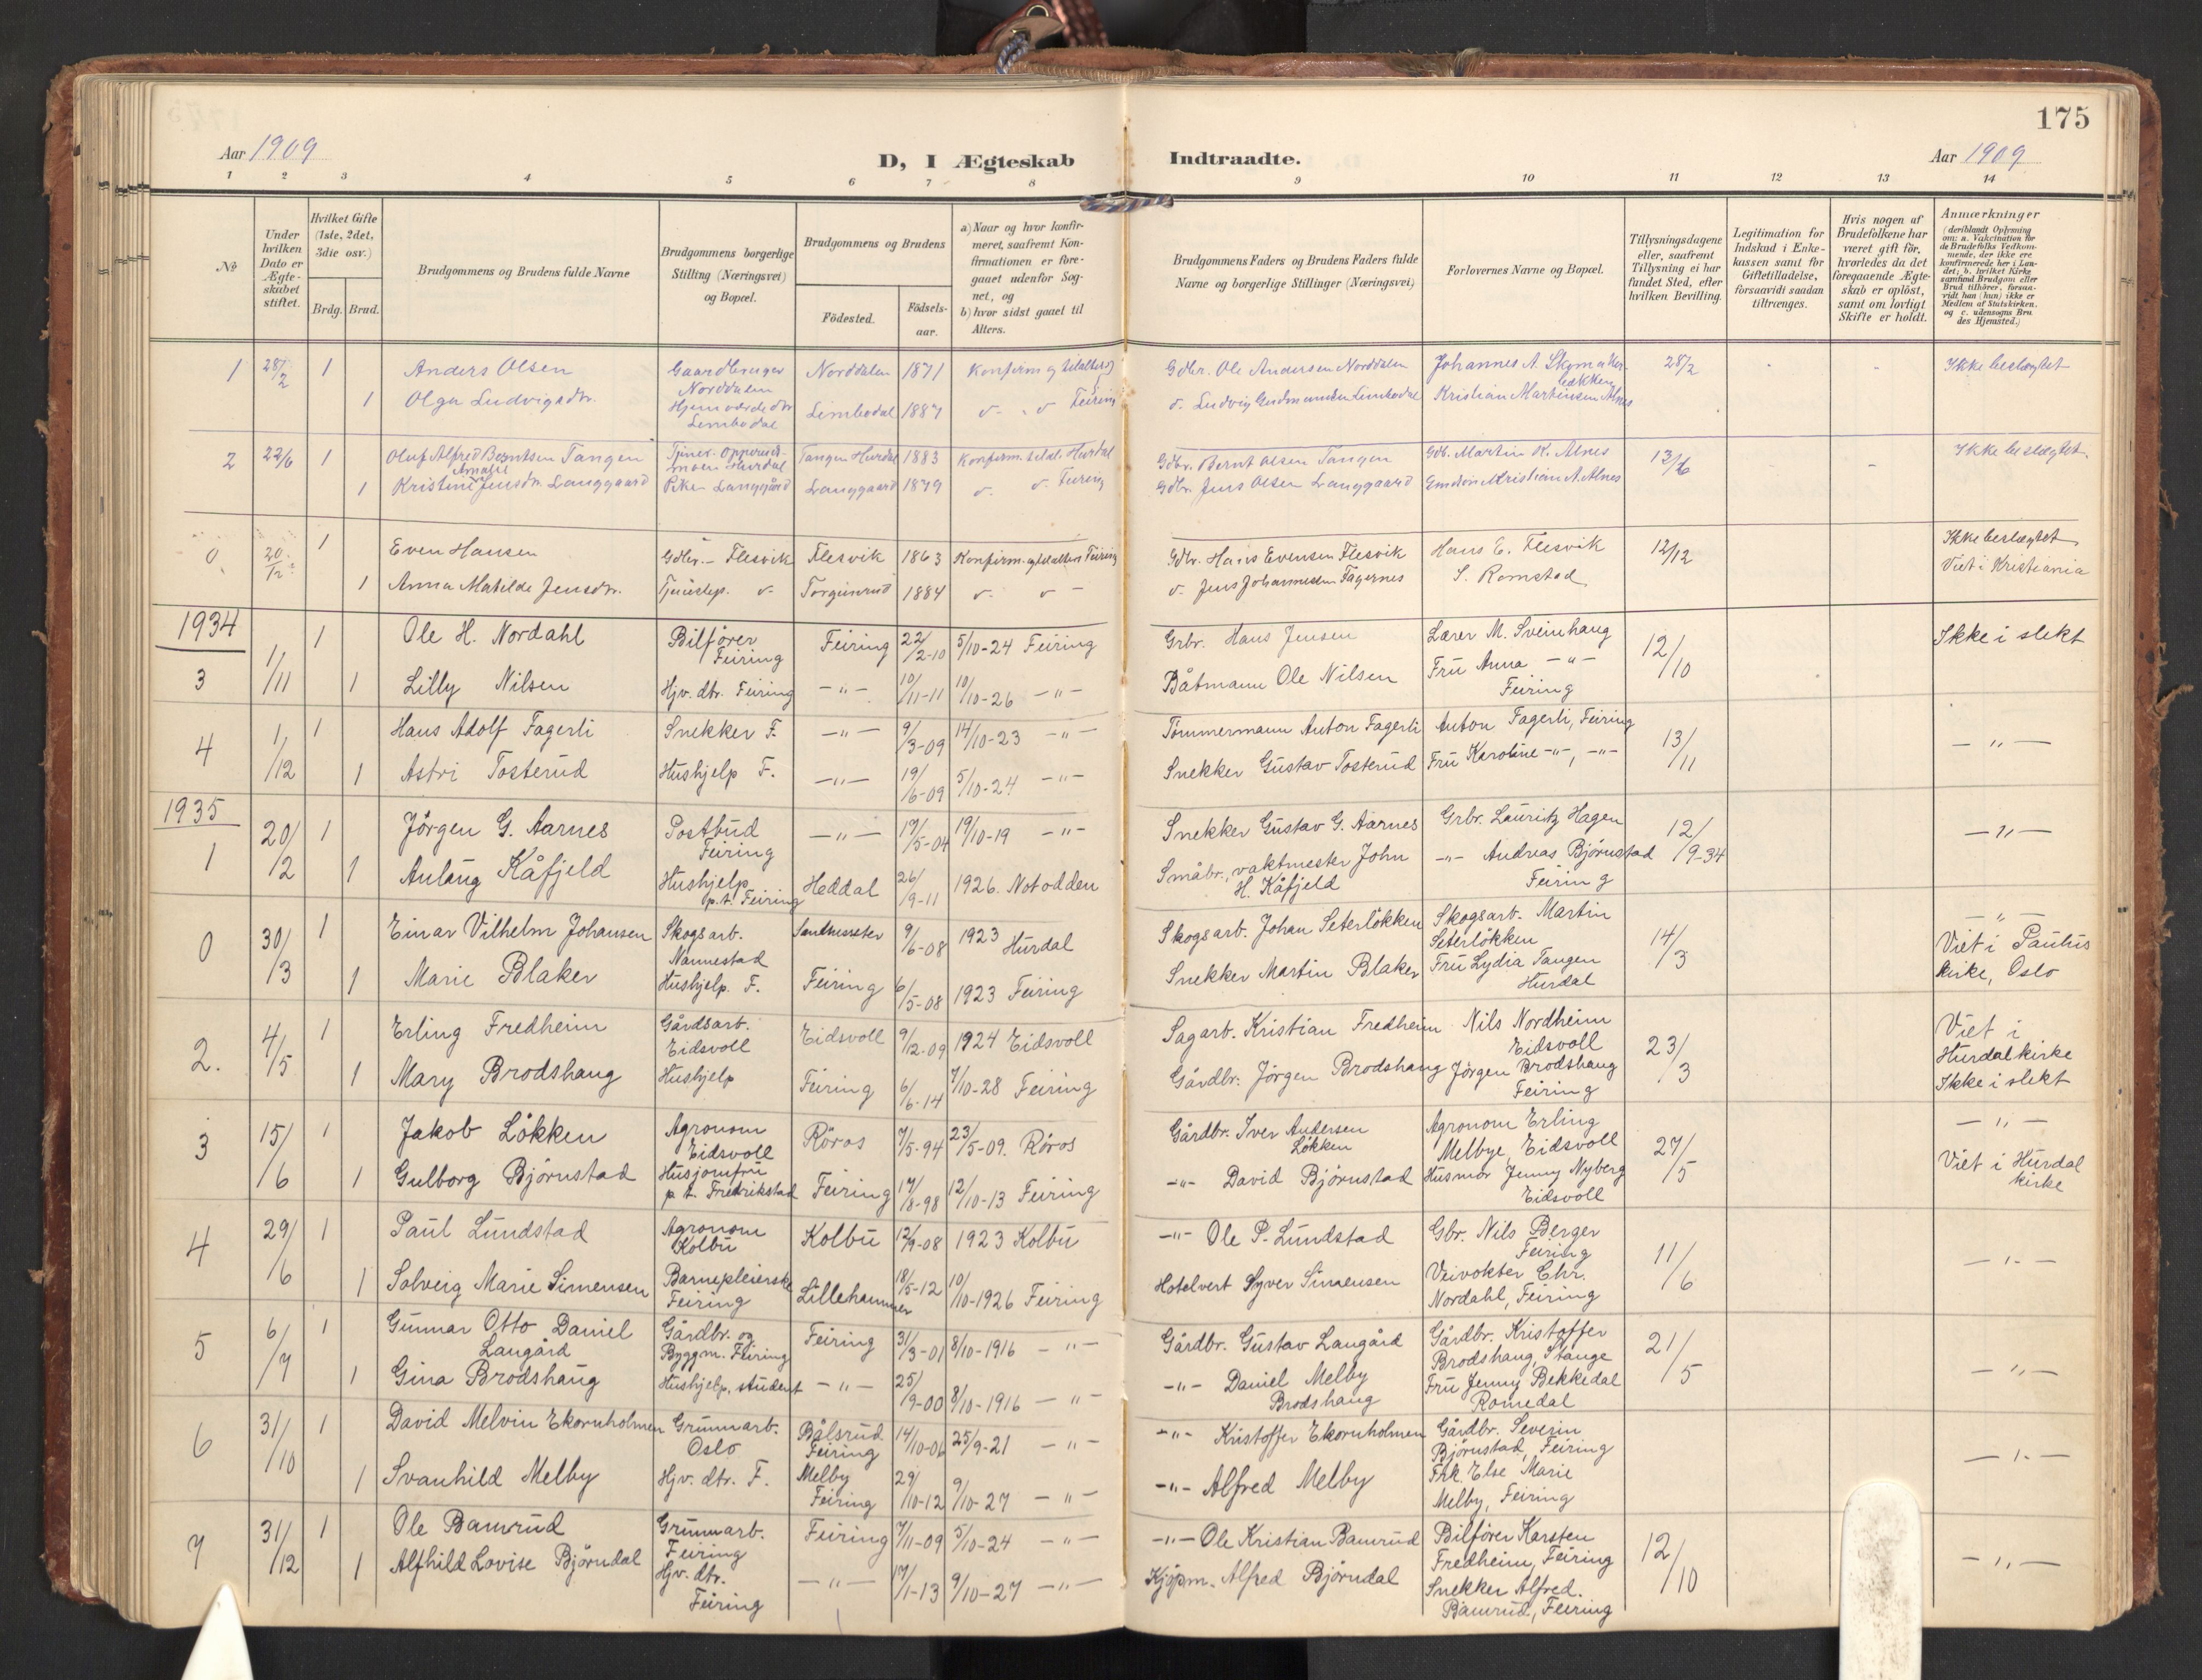 175
Aar 1909
D, I Ægteskab Indtraadte.
Aar 1909
1 2 3 4 5 6 7 8 9 10 11 12 13 14
№
Under hvilken Dato er Ægteskabet stiftet.
Hvilket Gifte (1ste, 2det, 3die osv.)
Brdg. Brud.
Brudgommens og Brudens fulde Navne
Brudgommens borgerlige Stilling (Næringsvei) og Bopæl.
Brudgommens og Brudens
Fødested.
Fødselsaar.
a) Naar og hvor konfirmeret, saafremt Konfirmationen er foregaaet udenfor Sognet, og
b) hvor sidst gaaet til Alters.
Brudgommens Faders og Brudens Faders fulde Navne og borgerlige Stillinger (Næringsvei)
Forlovernes Navne og Bopæl.
Tillysningsdagene eller, saafremt Tillysning ei har fundet Sted, efter hvilken Bevilling.
Legitimation for Indskud i Enkekassen samt for Giftetilladelse, forsaavidt saadan tiltrænges.
Hvis nogen af Brudefolkene har været gift før, hvorledes da det foregaaende Ægteskab er opløst, samt om lovligt Skifte er holdt.
Anmærkninger (deriblandt Oplysning om: a. Vakcination for de Brudefolks Vedkommende, der ikke ere konfirmerede her i Landet; b. hvilket Kirkesamfund Brudgom eller Brud tilhører, forsaavidt han (hun) ikke er Medlem af Statskirken, og c. udensogns Brudes Hjemsted.)
1 28/2 1 Anders Olsen Gaardbruger Norddalen Norddalen 1871 Konfirm og tilalters Gdbr. Ole Andersen Norddalen Johannes A. 28/2 Ikke beslægtet
1 Olga Ludvigsdtr. Hjemværdedtr Limbodal Limbodal 1887 Feiring Ludvig Gudmundsen Limbodal Kristian Martinsen Alnes
2 22/6 1 Oluf Alfred Berntsen Tangen Tangen Hurdal 1883 Konfirm. Hurdal Gdbr. Bernt Olsen Tangen Gdb. Martin K. Alnes 13/6 Ikke beslægtet
1 Kristine Amalie Jensdtr. Langgaard Pike Langgård Langgaard 1879 Feiring Gdbr. Jens Olsen Langgaard Kristian A. Alnes
0 20/12 1 Even Hansen Gdbr. - Flesvik Flesvik 1863 Konfirm. og tilalters Feiring Gdbr. Hans Evensen Flesvik Hans E. Flesvik 12/12 Ikke beslægtet
1 Anna Matilde Jensdtr. Tjenestep. Torgunrud 1884 Jens Johannesen Fagernes S. Romstad Viet i Kristiania
1934
3 1/11 1 Ole H. Nordahl Bilfører Feiring Feiring 22/2-10 5/10-24 Feiring Grbr. Hans Jensen Lærer M. Sveinhaug 12/10 Ikke i slekt
1 Lilly Nilsen Hjv. dtr. Feiring -"- 10/11-11 10/10-26 -"- Båtmann Ole Nilsen Fru Anna -"- Feiring
4 1/12 1 Hans Adolf Fagerli Snekker F. -"- 9/3-09 14/10-23 -"- Tømmermann Anton Fagerli Anton Fagerli, Feiring 13/11 -"-
1 Astri Tosterud Hushjelp F. -"- 19/6-09 5/10-24 -"- Snekker Gustav Tosterud Fru Karoline -"-, -"-
1935
1 20/2 1 Jörgen G. Aarnes Postbud Feiring -"- 19/5-04 19/10-19 -"- Snekker Gustav G. Aarnes Grbr. Lauritz Hagen 12/9-34 -"-
1 Aulaug Kåfjeld Hushjelp p.t. Feiring Heddal 26/9-11 1926. Notodden Småbr., vaktmester John H. Kåfjeld -"- Andreas Bjørnstad Feiring
0 30/3 1 Einar Vilhelm Johansen Skogsarb. Nannestad 9/6-08 1923 Hurdal Skogsarb. Johan Seterløkken Skogsarb. Martin Seterløkken 14/3 -"- Viet i Paulus kirke, Oslo
1 Marie Blaker Hushjelp. F. Feiring 6/5-08 1923 Feiring Snekker Martin Blaker Fru Lydia Tangen Hurdal
2. 4/5 1 Erling Fredheim Gårdsarb. Eidsvoll Eidsvoll 9/12-09 1924 Eidsvoll Sagarb. Kristian Fredheim Nils Nordheim Eidsvoll 23/3 Viet i Hurdal kirke
1 Mary Brodshaug Hushjelp Feiring 6/6-14 7/10-28 Feiring Gårdbr. Jörgen Brodshaug Jörgen Brodshaug Feiring Ikke i slekt
3 15/6 1 Jakob Løkken Agronom Eidsvoll Röros 7/5-94 23/5-09. Röros Gårdbr. Iver Andersen Løkken Agronom Erling Melbye, Eidsvoll 27/5 -"-
1 Gulborg Bjørnstad Husjomfru p.t. Fredrikstad Feiring 17/8-98 12/10-13 Feiring -"- David Bjørnstad Husmor Jenny Nyberg Eidsvoll Viet i Hurdal kirke
4 29/6 1 Paul Lundstad Agronom Kolbu Kolbu 12/9-08 1923 Kolbu -"- Ole P. Lundstad Gbr. Nils Berger Feiring 11/6 -"-
1 Solveig Marie Simensen Barnepleierske Feiring Lillehammer 18/5-12 10/10-1926 Feiring Hotelvert Syver Simensen Veivokter Chr. Nordahl, Feiring
5 6/7 1 Gunnar Otto Daniel Langård Gårdbr. og Byggm. Feiring Feiring 31/3-01 8/10-1916 -"- Gårdbr. Gustav Langård Gårdbr. Kristoffer Brodshaug, Stange 21/5 -"-
1 Gina Brodshaug Hushjelp, student -"- 25/9-00 8/10-1916 -"- -"- Daniel Melby Brodshaug Fru Jenny Bekkedal Romedal
6 31/10 1 David Melvin Ekornholmen Grunnarb. Oslo Bålsrud Feiring 14/10-06 25/9-21 -"- -"- Kristoffer Ekornholmen Gårdbr. Severin Bjørnstad, Feiring -"-
1 Svanhild Melby Hjv. dtr. F. Melby Feiring 29/10-12 9/10-27 -"- -"- Alfred Melby Frk. Else Marie Melby, Feiring
7 31/12 1 Ole Bamrud Grunnarb. Feiring Feiring 7/11-09 5/10-24 -"- -"- Ole Kristian Bamrud Bilfører Karsten Fredheim, Feiring 12/10 -"-
1 Alfhild Lovise Bjørndal Hjv. dtr. Feiring -"- 17/1-13 9/10-27 -"- Kjøpm. Alfred Bjørndal Snekker Alfred. Bamrud, Feiring